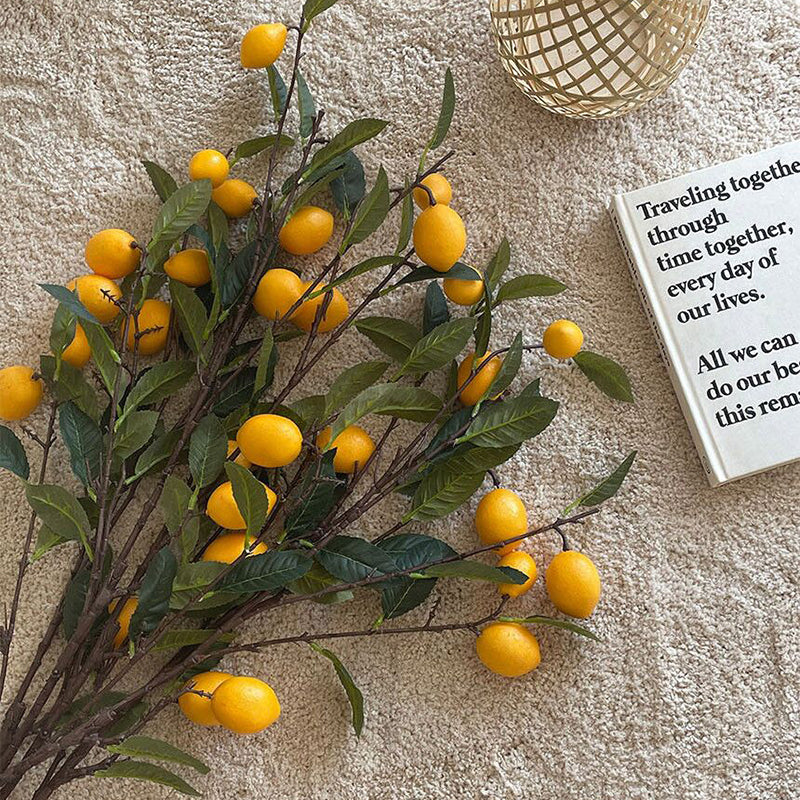 Traveling togethe
through
time together,
every day of
our lives.
All we can
do our bes
this remar